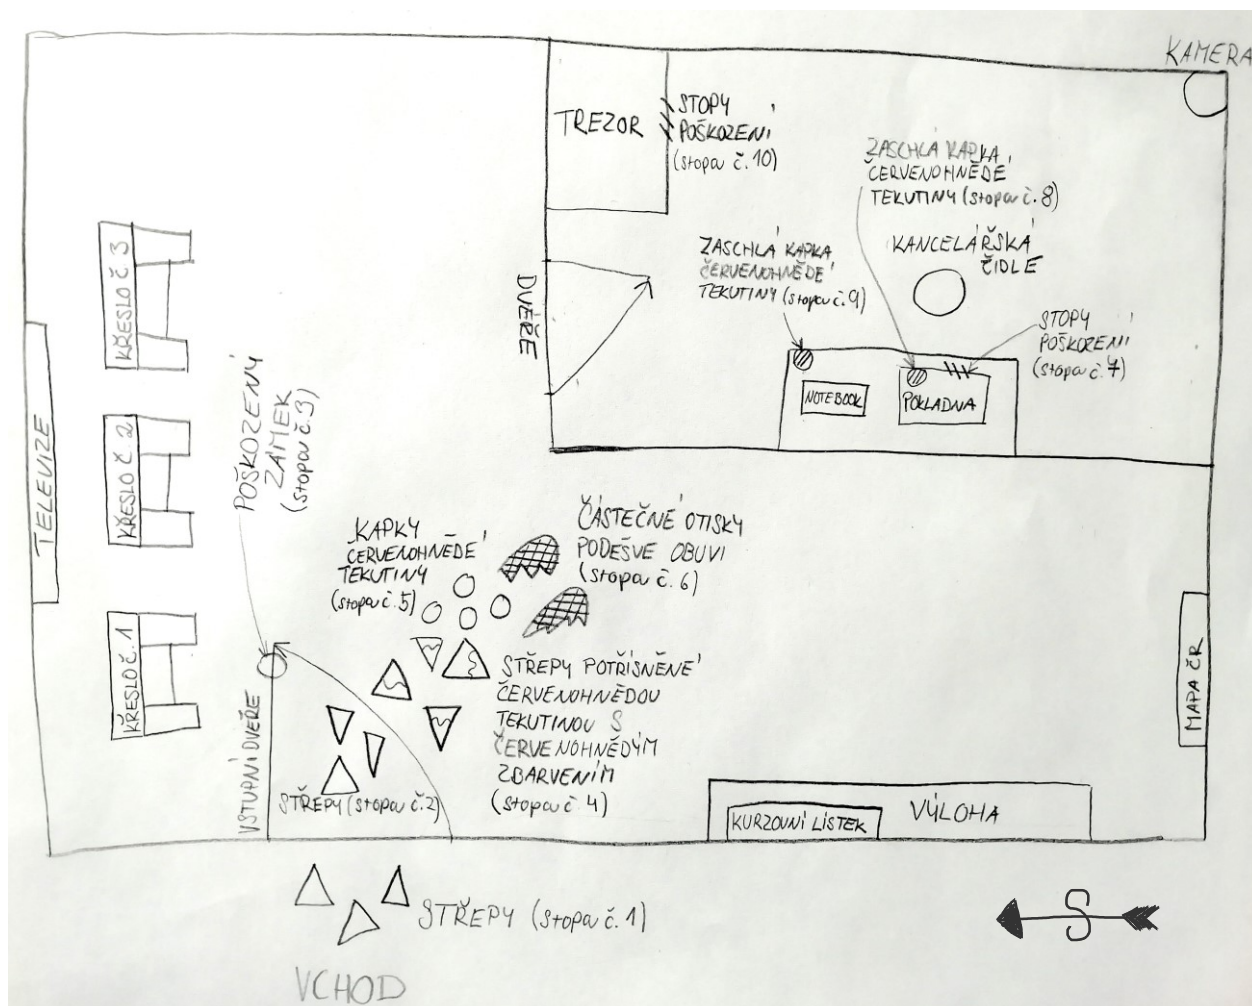 KAMERA
TREZOR
STOPY
POŠKOZENÍ
(stopa č.10)
ZASCHLÁ KAPKA
ČERVENOHNĚDÉ
TEKUTINY (stopa č.8)
KANCELÁŘSKÁ
ŽIDLE
ZASCHLÁ KAPKA
ČERVENOHNĚDÉ
TEKUTINY (stopa č.9)
STOPY
POŠKOZENÍ
(stopa č.7)
NOTEBOOK
POKLADNA
DVEŘE
KŘESLO č 3
KŘESLO Č 2
KŘESLO č.1
TELEVIZE
POŠKOZENÝ
ZÁMEK
(stopa č.3)
KAPKY
ČERVENOHNĚDÉ
TEKUTINY
(stopa č.5)
ČÁSTEČNÉ OTISKY
PODEŠVE OBUVI
(stopa č.6)
STŘEPY POTŘÍSNĚNÉ
ČERVENOHNĚDOU
TEKUTINOU S
ČERVENOHNĚDÝM
ZBARVENÍM
(stopa č.4)
VSTUPNÍ DVEŘE
STŘEPY (stopa č.2)
MAPA ČR
KURZOVNÍ LÍSTEK
VÝLOHA
STŘEPY (stopa č.1)
VCHOD
S